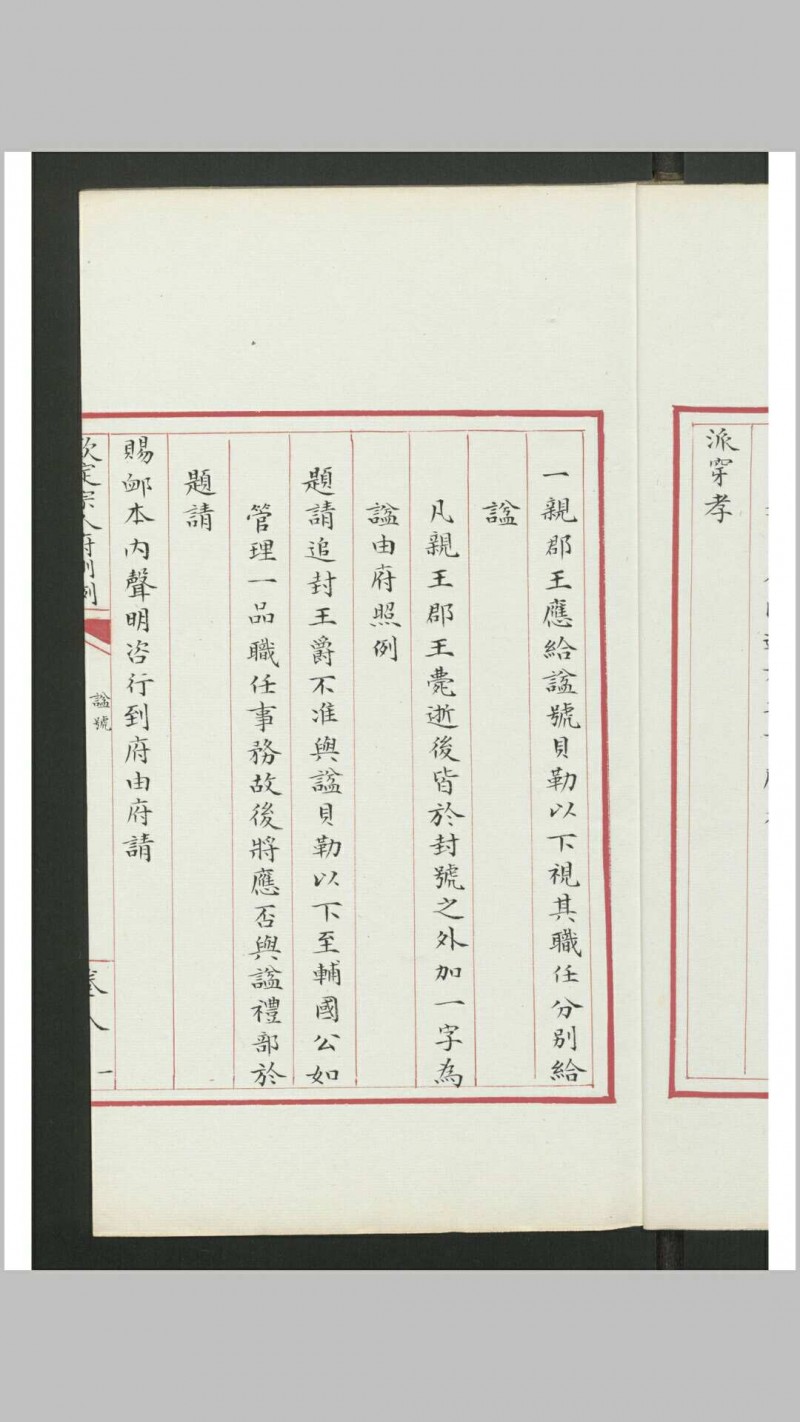 派穿孝
一親郡王應給諡號貝勒以下視其職任分別給
諡
凡親王郡王薨逝後皆於封號之外加一字為
諡由府照例
題請追封王爵不准與諡貝勒以下至輔國公如
管理一品職任事務故後將應否與諡禮部於
題請
賜䘏本內聲明咨行到府由府請
欽定宗人府則例
諡號
卷八
一